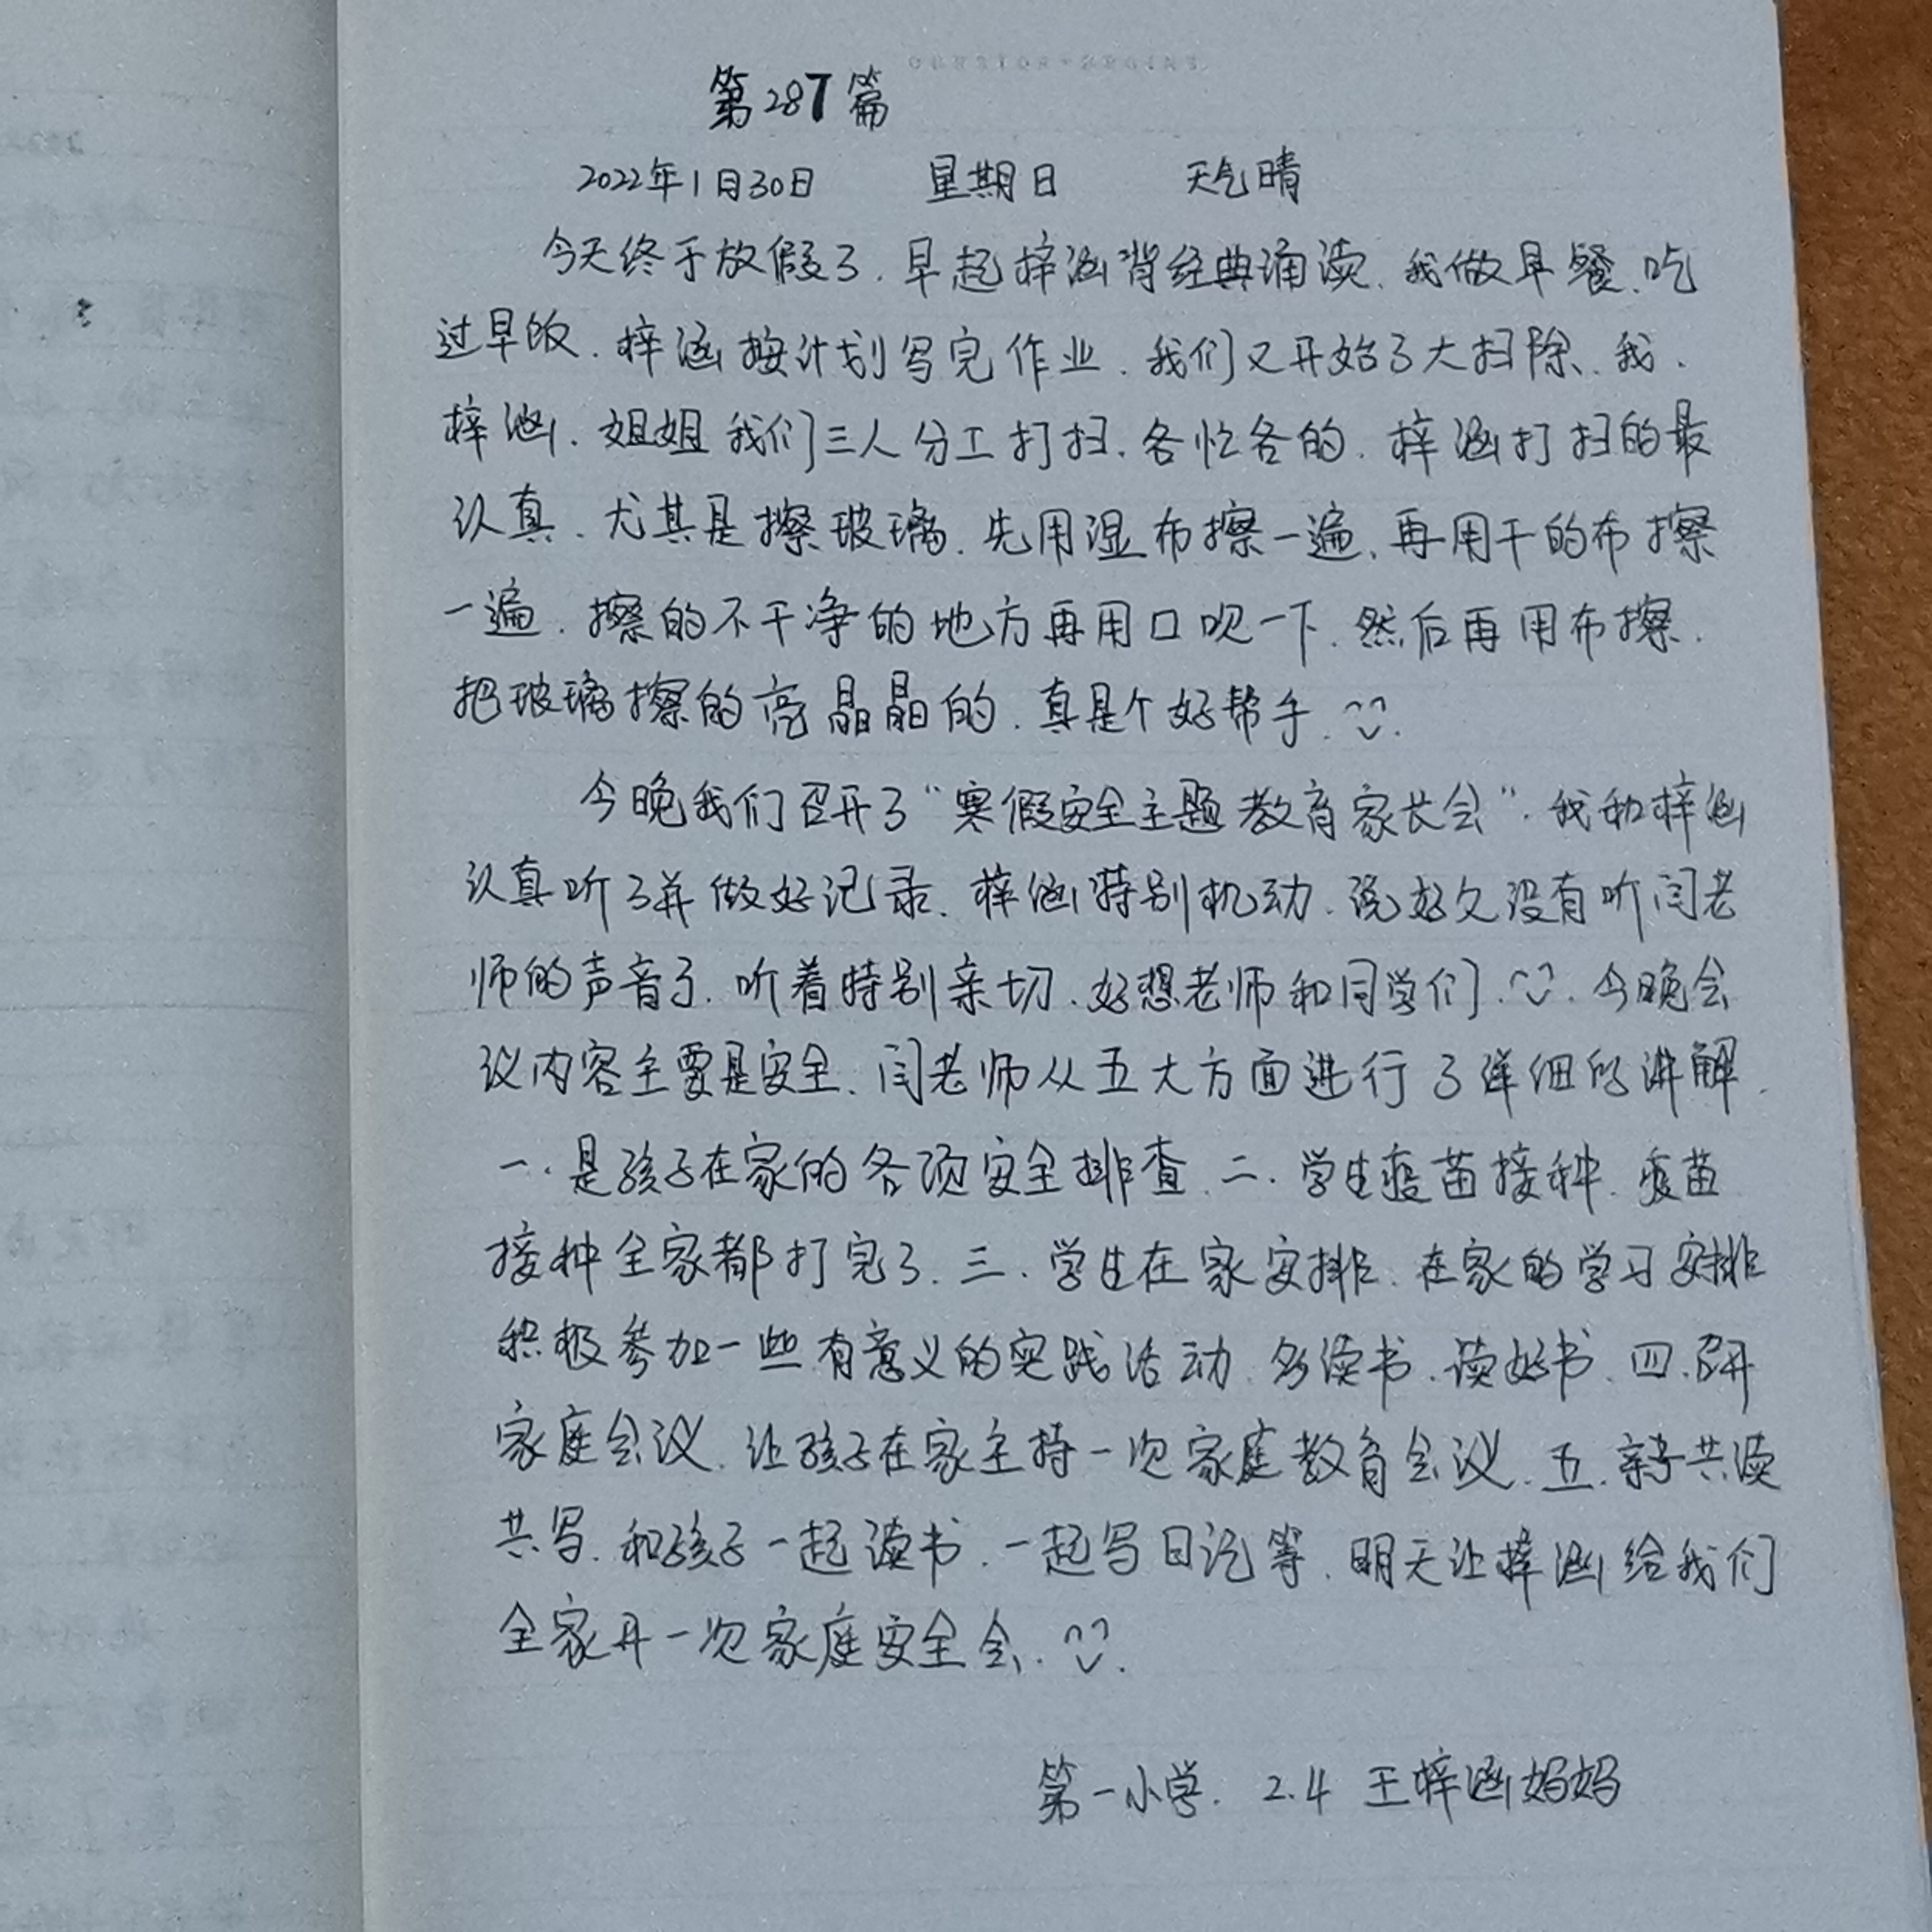 第287篇
2022年1月30日 星期日 天气晴
今天终于放假了.早起梓涵背经典诵读.我做早餐.吃
过早饭.梓涵按计划写完作业.我们又开始了大扫除.我.
梓涵.姐姐我们三人分工打扫.各忙各的.梓涵打扫的最
认真.尤其是擦玻璃.先用湿布擦一遍.再用干的布擦
一遍.擦的不干净的地方再用口吹一下.然后再用布擦.
把玻璃擦的亮晶晶的.真是个好帮手.
今晚我们召开了“寒假安全主题教育家长会”.我和梓涵
认真听了并做好记录.梓涵特别机动.说好久没有听闫老
师的声音了.听着特别亲切.好想老师和同学们.今晚会
议内容主要是安全.闫老师从五大方面进行了详细的讲解.
一.是孩子在家的各项安全排查.二.学生疫苗接种.疫苗
接种全家都打完了.三.学生在家安排.在家的学习安排
积极参加一些有意义的实践活动.多读书.读好书.四.召开
家庭会议.让孩子在家主持一次家庭教育会议.五.亲子共读
共写.和孩子一起读书.一起写日记等.明天让梓涵给我们
全家开一次家庭安全会.
第一小学. 2.4 王梓涵妈妈